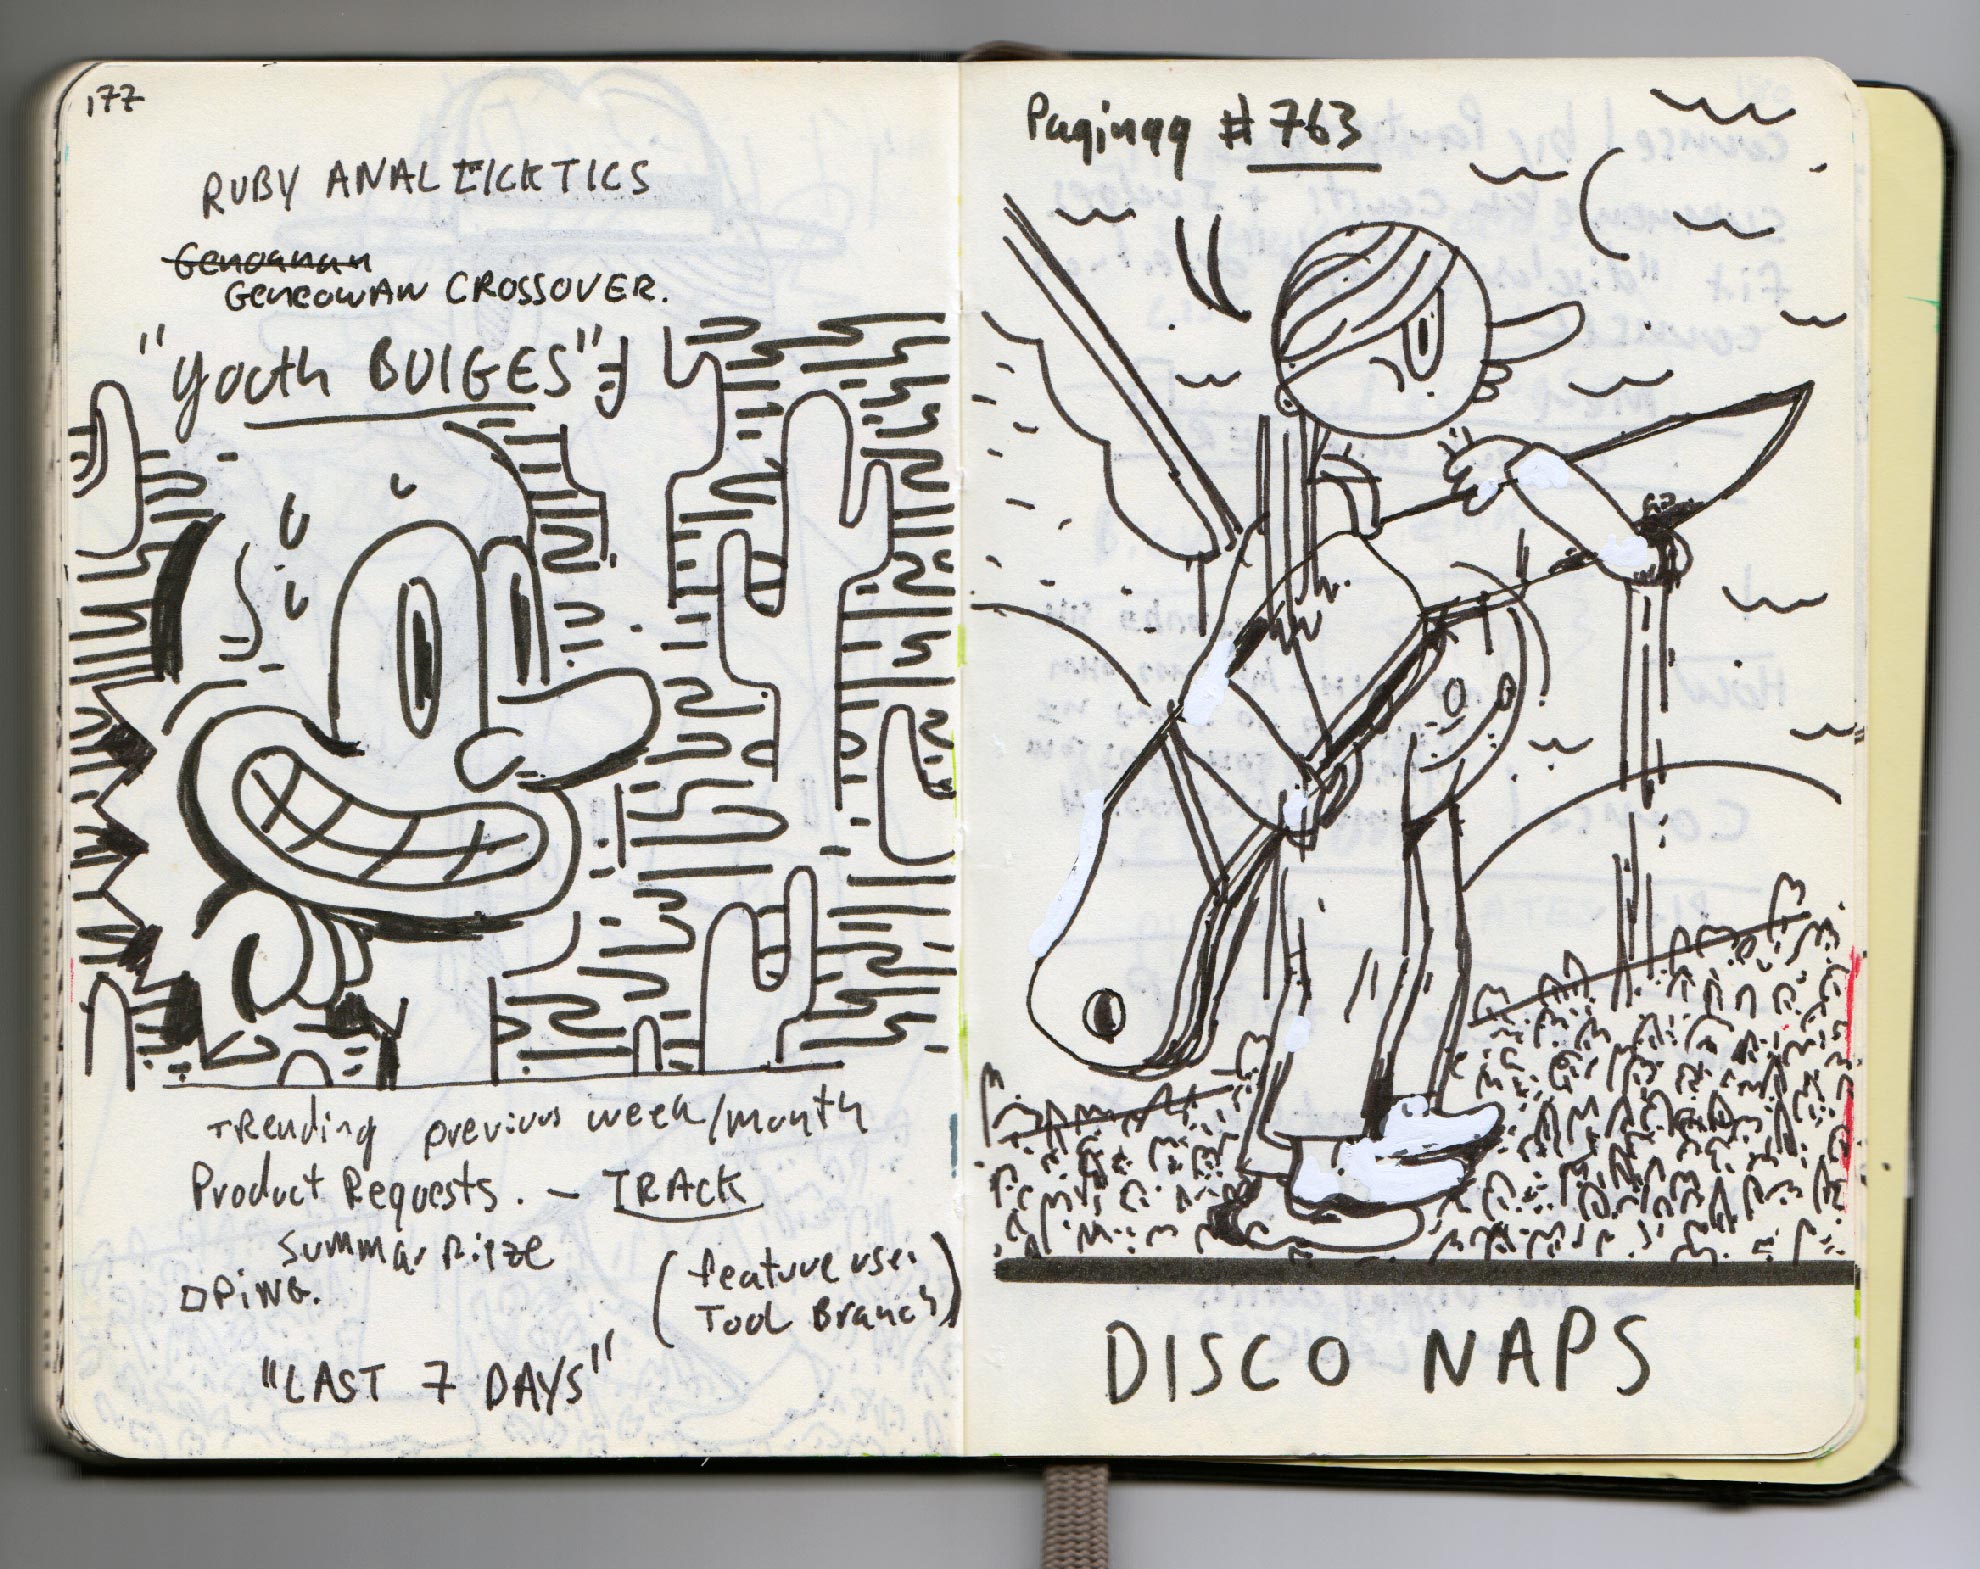 177
RUBY ANALEICKTICS
Genoanan
GENEOWAN CROSSOVER.
"Youth BULGES"
TRending previous week/month
Product Requests. – TRACK
Summar Rieze
OPING.
(feature use.
Tool Branch)
"LAST 7 DAYS"
Paginqq #763
DISCO NAPS